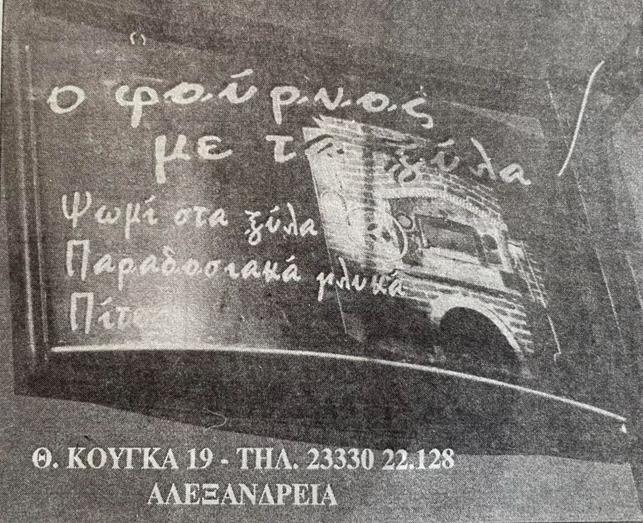 ο φούρνος
με τα ξύλα
Ψωμί στα ξύλα
Παραδοσιακά γλυκά
Πίτες
Θ. ΚΟΥΓΚΑ 19 - ΤΗΛ. 23330 22.128
ΑΛΕΞΑΝΔΡΕΙΑ